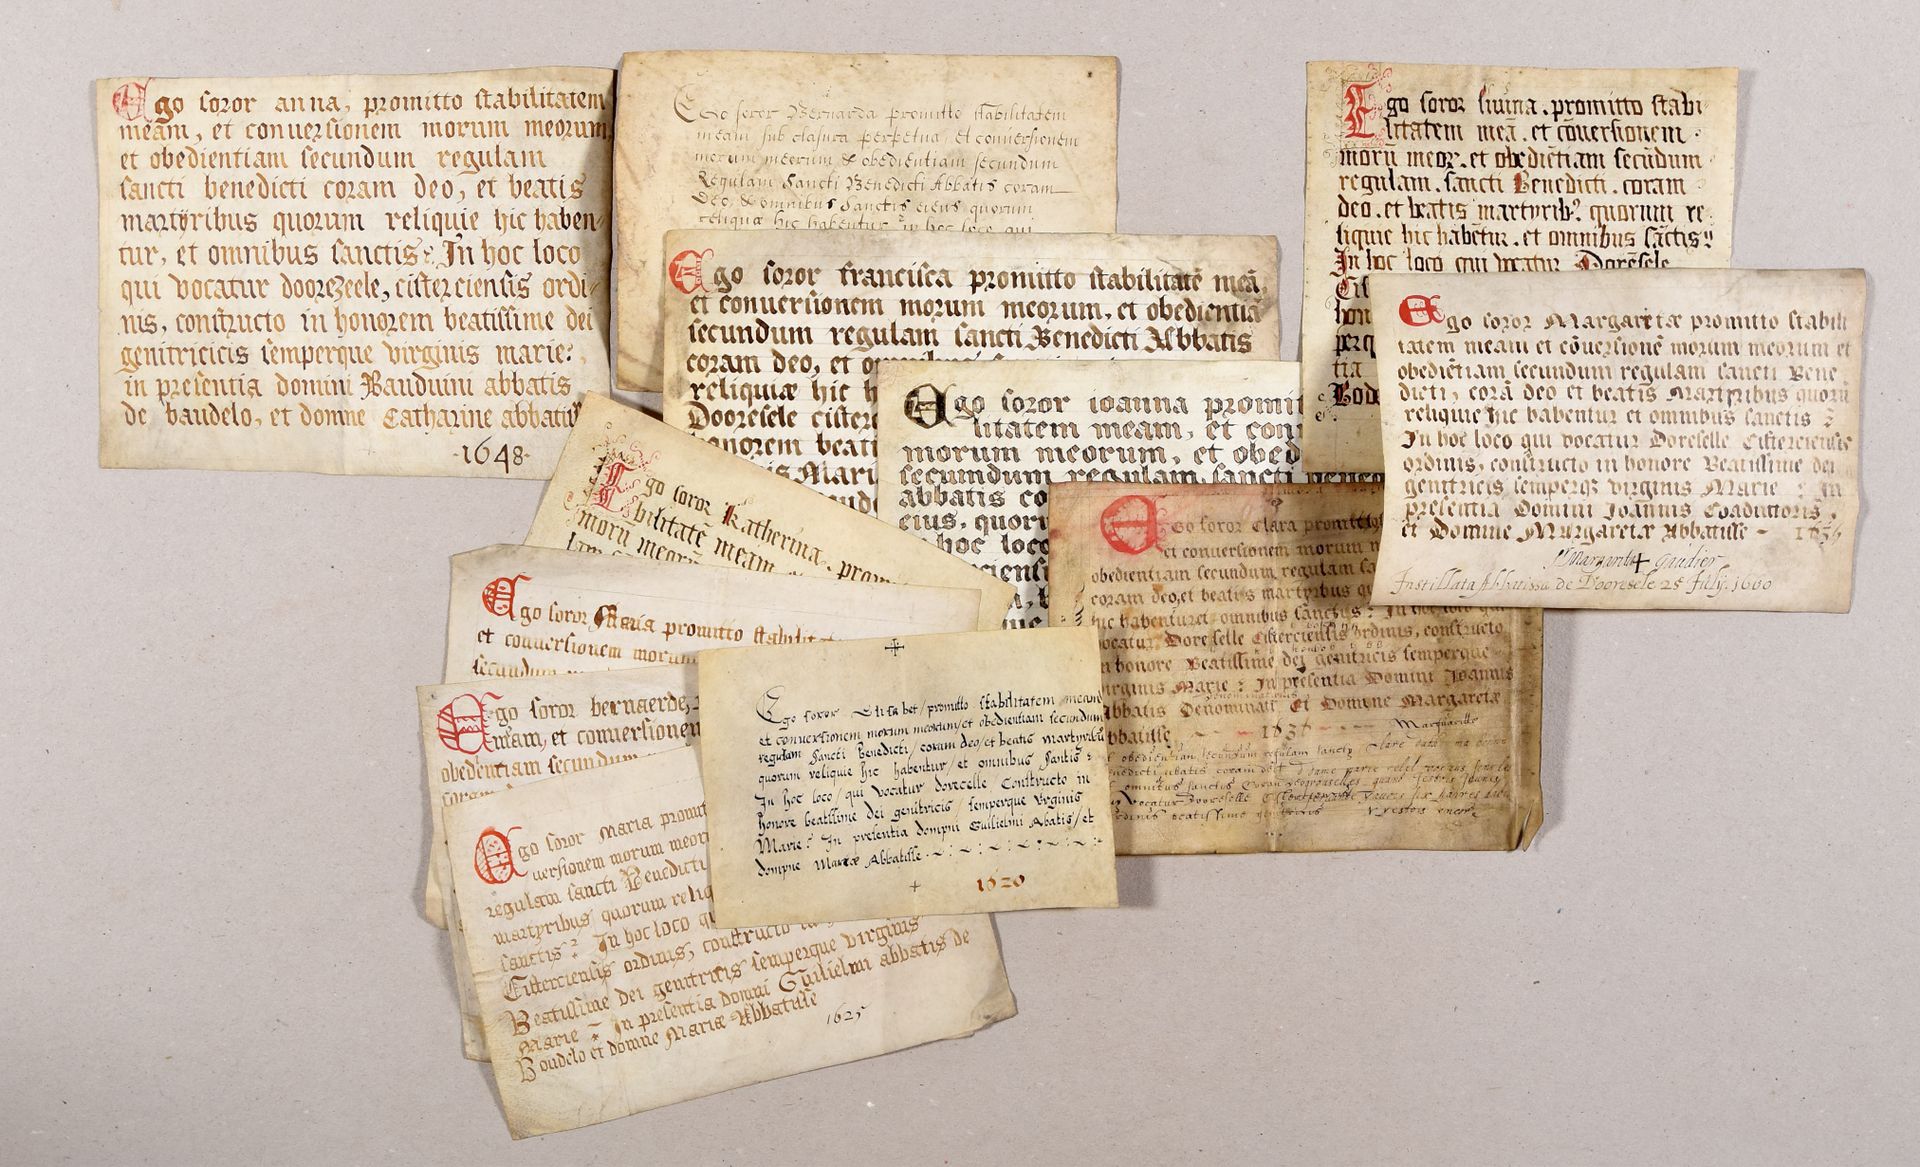 Ego soror anna, promitto stabilitatem
meam, et conuersionem morum meorum,
et obedientiam secundum regulam
sancti benedicti coram deo, et beatis
martyribus quorum reliquie hic haben-
tur, et omnibus sanctis: In hoc loco
qui vocatur doorezeele, cisterciensis ordi-
nis, constructo in honorem beatissime dei
genitricicis semperque virginis marie:
in presentia domini Bauduini abbatis
de baudelo, et domne Catharine abbatiss
1648
Ego soror Bernarda promitto stabilitatem
meam sub clasura perpetua, et conuersionem
morum meorum & obedientiam secundum
Regulam Sancti Benedicti Abbatis coram
Deo, & omnibus Sanctis eius quorum
reliquæ hic habentur in hoc loco qui
Ego soror francisca promitto stabilitatē meā,
et conuersionem morum meorum, et obedientiā
secundum regulam sancti Benedicti Abbatis
coram deo, et
reliquiæ hic h
Dooresele cister
honorem beati
Mari
Ego soror ioanna promit
litatem meam, et con
morum meorum, et obed
secundum regulam sancti bened
abbatis co
eius, quoru
hoc loco
Ego soror liuina. promitto stabi
litatem meā. et cōuersionem
morū meor. et obediētiam secūdum
regulam. sancti Benedicti. coram
deo. et beatis martyrib? quorum re-
liquie hic habētur. et omnibus sāctis:
In hoc loco qui vocatur Doresele
Cis
hon
perq
tia
Bod
Ego soror Margaretæ promitto stabili
tatem meam et cōuersionē morum meorum et
obediētiam secundum regulam sancti Bene
dicti, corā deo et beatis Martyribus quorū
reliquie hic habentur et omnibus sanctis :
In hoc loco qui vocatur Doreselle Cisterciensis
ordinis, constructo in honore Beatissime dei
genitricis semperq3 virginis Marie : In
presentia Domini Joannis Coadiutoris
et Domine Margaretæ Abbatisse -
Margarita + gaudier
Instillata Abbatissa de Dooresele 25 July. 1660
Ego soror Katherina. prom
bilitatē meam
morū meorū
Ego soror Clara promitto
et conuersionem morum m
obedientiam secundum regulam sa
coram deo, et beatis martyribus qu
hic habentur et omnibus sanctys: In hoc loco qui
vocatur Doreselle Cisterciensis Ordinis, constructo
in honore Beatissime dei genitricis semperque
virginis Marie : In presentia Domini Joannis
Abbatis Denominati Et Domine Margaretæ
Abbatisse
1636
Ego soror Maria promitto stabilitat
et conuersionem morum
secundum
Ego soror bernaerde,
meam, et conuersionem
obedientiam secundum
Ego soror Elisabet / promitto stabilitatem meam
et conuersionem morum meorum / et obedientiam secundum
regulam Sancti Benedicti / coram deo / et beatis Martyribu
quorum reliquie hic habentur / et omnibus Santis :
In hoc loco / qui vocatur dorecelle Constructo in
honore beatissime dei genitricis / semperque Virginis
Marie: In presentia dompni Guilielmi Abatis / et
dompne Mariæ Abbatisse.
1620
Ego soror Maria promit
uersionem morum meor
regulam sancti Benedicti
martyribus quorum reliq
sanctis: In hoc loco qu
Cisterciensis ordinis, constructo
Beatissime dei genitricis semperque virginis
Marie : In presentia domni Guilielmi abbatis de
Boudelo et domne Mariæ Abbatisse
1625